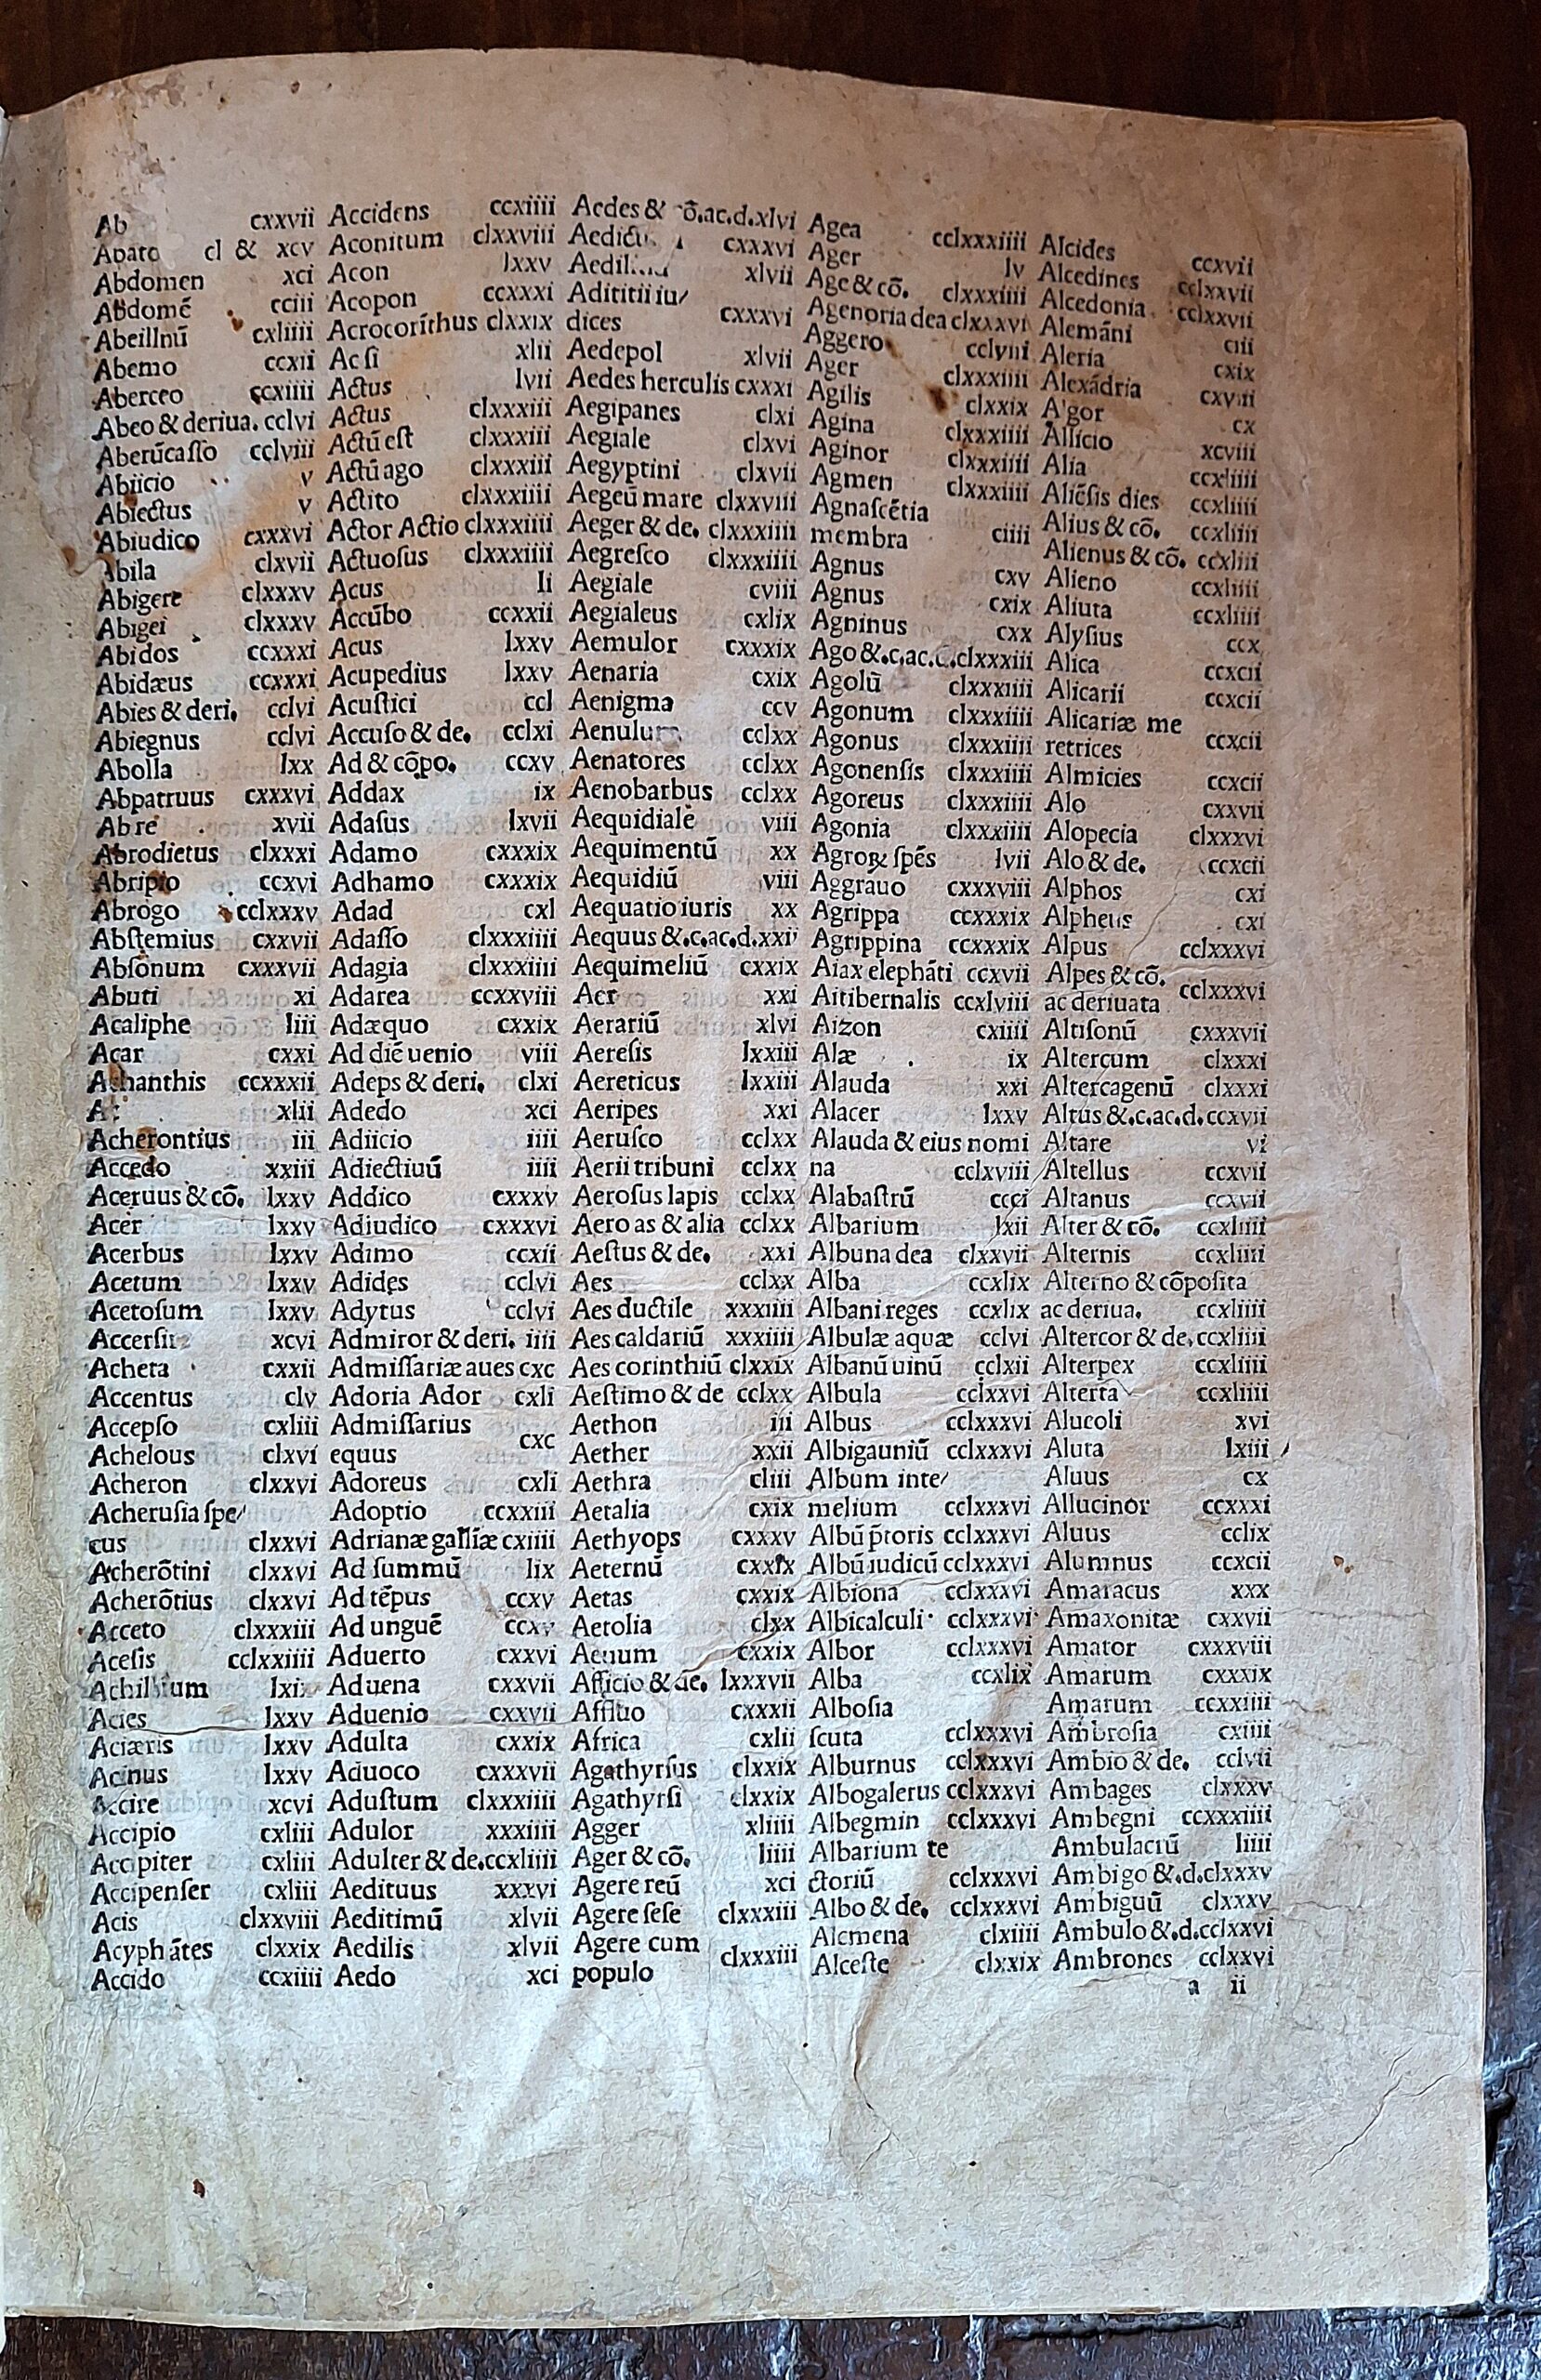 Ab cxxvii
cl & xcv
Abdomen xci
Abdomẽ cciii
Abeillnũ cxliiii
Abemo ccxii
Aberceo ccxiiii
Abeo & deriua. cclvi
Aberũcaſſo cclviii
Abiicio v
Abiectus v
Abiudico cxxxvi
Abila clxvii
Abigere clxxxv
Abigei clxxxv
Abidos ccxxxi
Abidæus ccxxxi
Abies & deri. cclvi
Abiegnus cclvi
Abolla lxx
Abpatruus cxxxvi
Ab re xvii
Abrodietus clxxxi
Abripio ccxvi
Abrogo cclxxxv
Abſtemius cxxvii
Abſonum cxxxvii
Abuti xi
Acaliphe liii
Acar cxxi
Achanthis ccxxxii
xlii
Acherontius iii
Accedo xxiii
Aceruus & cõ. lxxv
Acer lxxv
Acerbus lxxv
Acetum lxxv
Acetoſum lxxv
xcvi
Acheta cxxii
Accentus clv
Accepſo cxliii
Achelous clxvi
Acheron clxxvi
Acheruſia ſpe/
cus clxxvi
Acherõtini clxxvi
Acherõtius clxxvi
Acceto clxxxiii
Aceſis cclxxiiii
Acies lxxv
Aciæris lxxv
Acinus lxxv
Accire xcvi
Accipio cxliii
Accipiter cxliii
Accipenſer cxliii
Acis clxxviii
Acyphãtes clxxix
Accido ccxiiii
Accidens ccxiiii
Aconitum clxxviii
Acon lxxv
Acopon ccxxxi
Acrocorĩthus clxxix
Ac ſi xlii
Actus lvii
Actus clxxxiii
Actũ eſt clxxxiii
Actũ ago clxxxiii
Actito clxxxiiii
Actor Actio clxxxiiii
Actuoſus clxxxiiii
Acus li
Accũbo ccxxii
Acus lxxv
Acupedius lxxv
Acuſtici ccl
Accuſo & de. cclxi
Ad & cõpo. ccxv
Addax ix
Adaſus lxvii
Adamo cxxxix
Adhamo cxxxix
Adad cxl
Adaſſo clxxxiiii
Adagia clxxxiiii
Adarea ccxxviii
Adæquo cxxix
Ad diẽ uenio viii
Adeps & deri. clxi
Adedo xci
Adiicio iiii
Adiectiuũ iiii
Addico cxxxv
Adiudico cxxxvi
Adimo ccxii
Adidęs cclvi
Adytus cclvi
Admiror & deri. iiii
Admiſſariæ aues cxc
Adoria Ador cxli
Admiſſarius
equus cxc
Adoreus cxli
Adoptio ccxxiii
Adrianæ gallĩæ cxiiii
Ad ſummũ lix
Ad tẽpus ccxv
Ad unguẽ ccxv
Aduerto cxxvi
Aduena cxxvii
Aduenio cxxvii
Adulta cxxix
Aduoco cxxxvii
Aduſtum clxxxiiii
Adulor xxxiiii
Adulter & de. ccxliiii
Aedituus xxxvi
Aeditimũ xlvii
Aedilis xlvii
Aedo xci
Aedes & cõ. ac. d. xlvi
cxxxvi
xlvii
Adititii iu/
dices cxxxvi
Aedepol xlvii
Aedes herculis cxxxi
Aegipanes clxi
Aegiale clxvi
Aegyptini clxvii
Aegeũ mare clxxviii
Aeger & de. clxxxiiii
Aegreſco clxxxiiii
Aegiale cviii
Aegialeus cxlix
Aemulor cxxxix
Aenaria cxix
Aenigma ccv
cclxx
Aenatores cclxx
Aenobarbus cclxx
Aequidiale viii
Aequimentũ xx
Aequidiũ viii
Aequatio iuris xx
Aequus &.c.ac.d.
Aequimeliũ cxxix
Aer xxi
Aerariũ xlvi
Aereſis lxxiii
Aereticus lxxiii
Aeripes xxi
Aeruſco cclxx
Aerii tribuni cclxx
Aeroſus lapis cclxx
Aero as & alia cclxx
Aeſtus & de. xxi
Aes cclxx
Aes ductile xxxiiii
Aes caldariũ xxxiiii
Aes corinthiũ clxxix
Aeſtimo & de cclxx
Aethon iii
Aether xxii
Aethra cliii
Aetalia cxix
Aethyops cxxxv
Aeternũ cxxix
Aetas cxxix
Aetolia clxx
Aeuum cxxix
Afficio & de. lxxxvii
Affluo cxxxii
Africa cxlii
Agathyrſus clxxix
Agathyrſi clxxix
Agger xliiii
Ager & cõ. liiii
Agere reũ xci
Agere ſeſe clxxxiii
Agere cum
populo clxxxiii
Agea cclxxxiiii
Ager lv
Age & cõ. clxxxiiii
Agenoria dea clxxxvi
Aggero cclviii
Ager clxxxiiii
Agilis clxxix
Agina clxxxiiii
Aginor clxxxiiii
Agmen clxxxiiii
Agnaſcẽtia
membra ciiii
Agnus cxv
Agnus cxix
Agninus cxx
Ago &.c.ac.d. clxxxiii
Agolũ clxxxiiii
Agonum clxxxiiii
Agonus clxxxiiii
Agonenſis clxxxiiii
Agoreus clxxxiiii
Agonia clxxxiiii
Agroꝝ ſpẽs lvii
Aggrauo cxxxviii
Agrippa ccxxxix
Agrippina ccxxxix
Aiax elephãti ccxvii
Aitibernalis ccxlviii
Aizon cxiiii
Alæ ix
Alauda xxi
Alacer lxxv
Alauda & eius nomi
na cclxviii
Alabaſtrũ ccci
Albarium lxii
Albuna dea clxxvii
Alba ccxlix
Albani reges ccxlix
Albulæ aquæ cclvi
Albanũ uinũ cclxii
Albula cclxxvi
Albus cclxxxvi
Albigauniũ cclxxxvi
Album inte/
melium cclxxxvi
Albũ p̃toris cclxxxvi
Albũ iudicũ cclxxxvi
Albiona cclxxxvi
Albicalculi cclxxxvi
Albor cclxxxvi
Alba ccxlix
Alboſia
ſcuta cclxxxvi
Alburnus cclxxxvi
Albogalerus cclxxxvi
Albegmin cclxxxvi
Albarium te
ctoriũ cclxxxvi
Albo & de. cclxxxvi
Alcmena clxiiii
Alceſte clxxix
Alcides ccxvii
Alcedines cclxxvii
Alcedonia cclxxvii
Alemãni ciii
Aleria cxix
Alexãdria cxviii
Algor cx
Allicio xcviii
Alia ccxliiii
Aliẽſis dies ccxliiii
Alius & cõ. ccxliiii
Alienus & cõ. ccxliii
Alieno ccxliiii
Aliuta ccxliiii
Alyſius ccx
Alica ccxcii
Alicarii ccxcii
Alicariæ me
retrices ccxcii
Almicies ccxcii
Alo cxxvii
Alopecia clxxxvi
Alo & de. ccxcii
Alphos cxi
Alpheus cxi
Alpus cclxxxvi
Alpes & cõ.
ac deriuata cclxxxvi
Altiſonũ cxxxvii
Altercum clxxxi
Altercagenũ clxxxi
Altus &.c.ac.d. ccxvii
Altare vi
Altellus ccxvii
Altanus ccxvii
Alter & cõ. ccxliiii
Alternis ccxliiii
Alterno & cõpoſita
ac deriua. ccxliiii
Altercor & de. ccxliiii
Alterpex ccxliiii
Alterta ccxliiii
Alucoli xvi
Aluta lxiii
Aluus cx
Allucinor ccxxxi
Aluus cclix
Alumnus ccxcii
Amaracus xxx
Amaxonitæ cxxvii
Amator cxxxviii
Amarum cxxxix
Amarum ccxxiiii
Ambroſia cxiiii
Ambio & de. cclvii
Ambages clxxxv
Ambegni ccxxxiiii
Ambulacrũ liiii
Ambigo &.d. clxxxv
Ambiguũ clxxxv
Ambulo &.d. cclxxvi
Ambrones cclxxvi
a ii